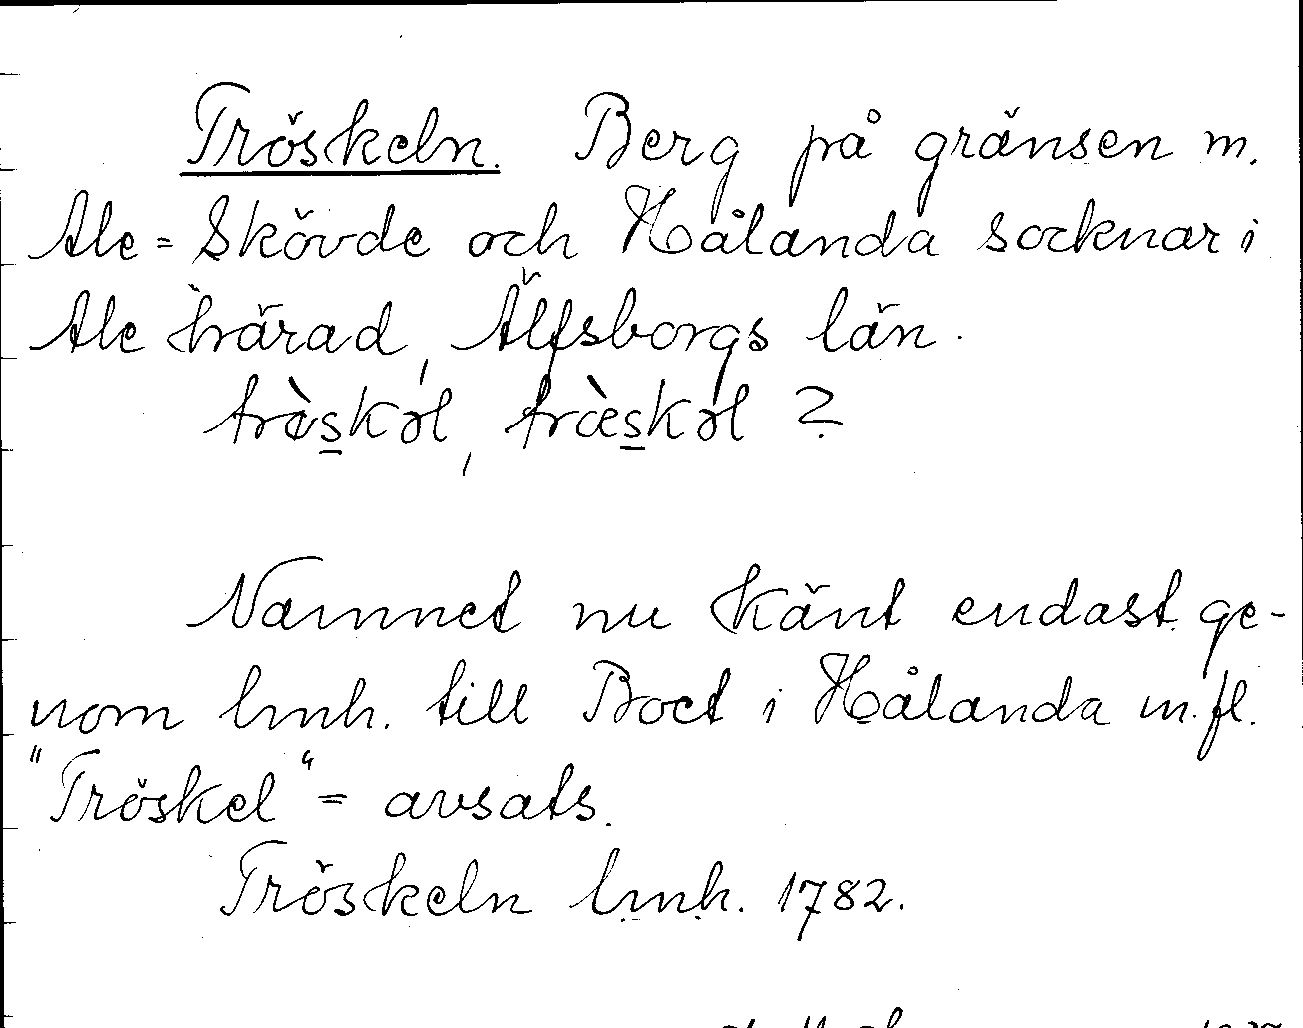 Tröskeln. Berg på gränsen m.
Ale=Skövde och Hålanda socknar i
Ale härad, Älfsborgs län.
trɛ̀s̲kəl, træ̀s̲kəl ?
Namnet nu känt endast ge-
nom lmh. till Boet i Hålanda m.fl.
"Tröskel" = avsats.
Tröskeln lmh. 1782.